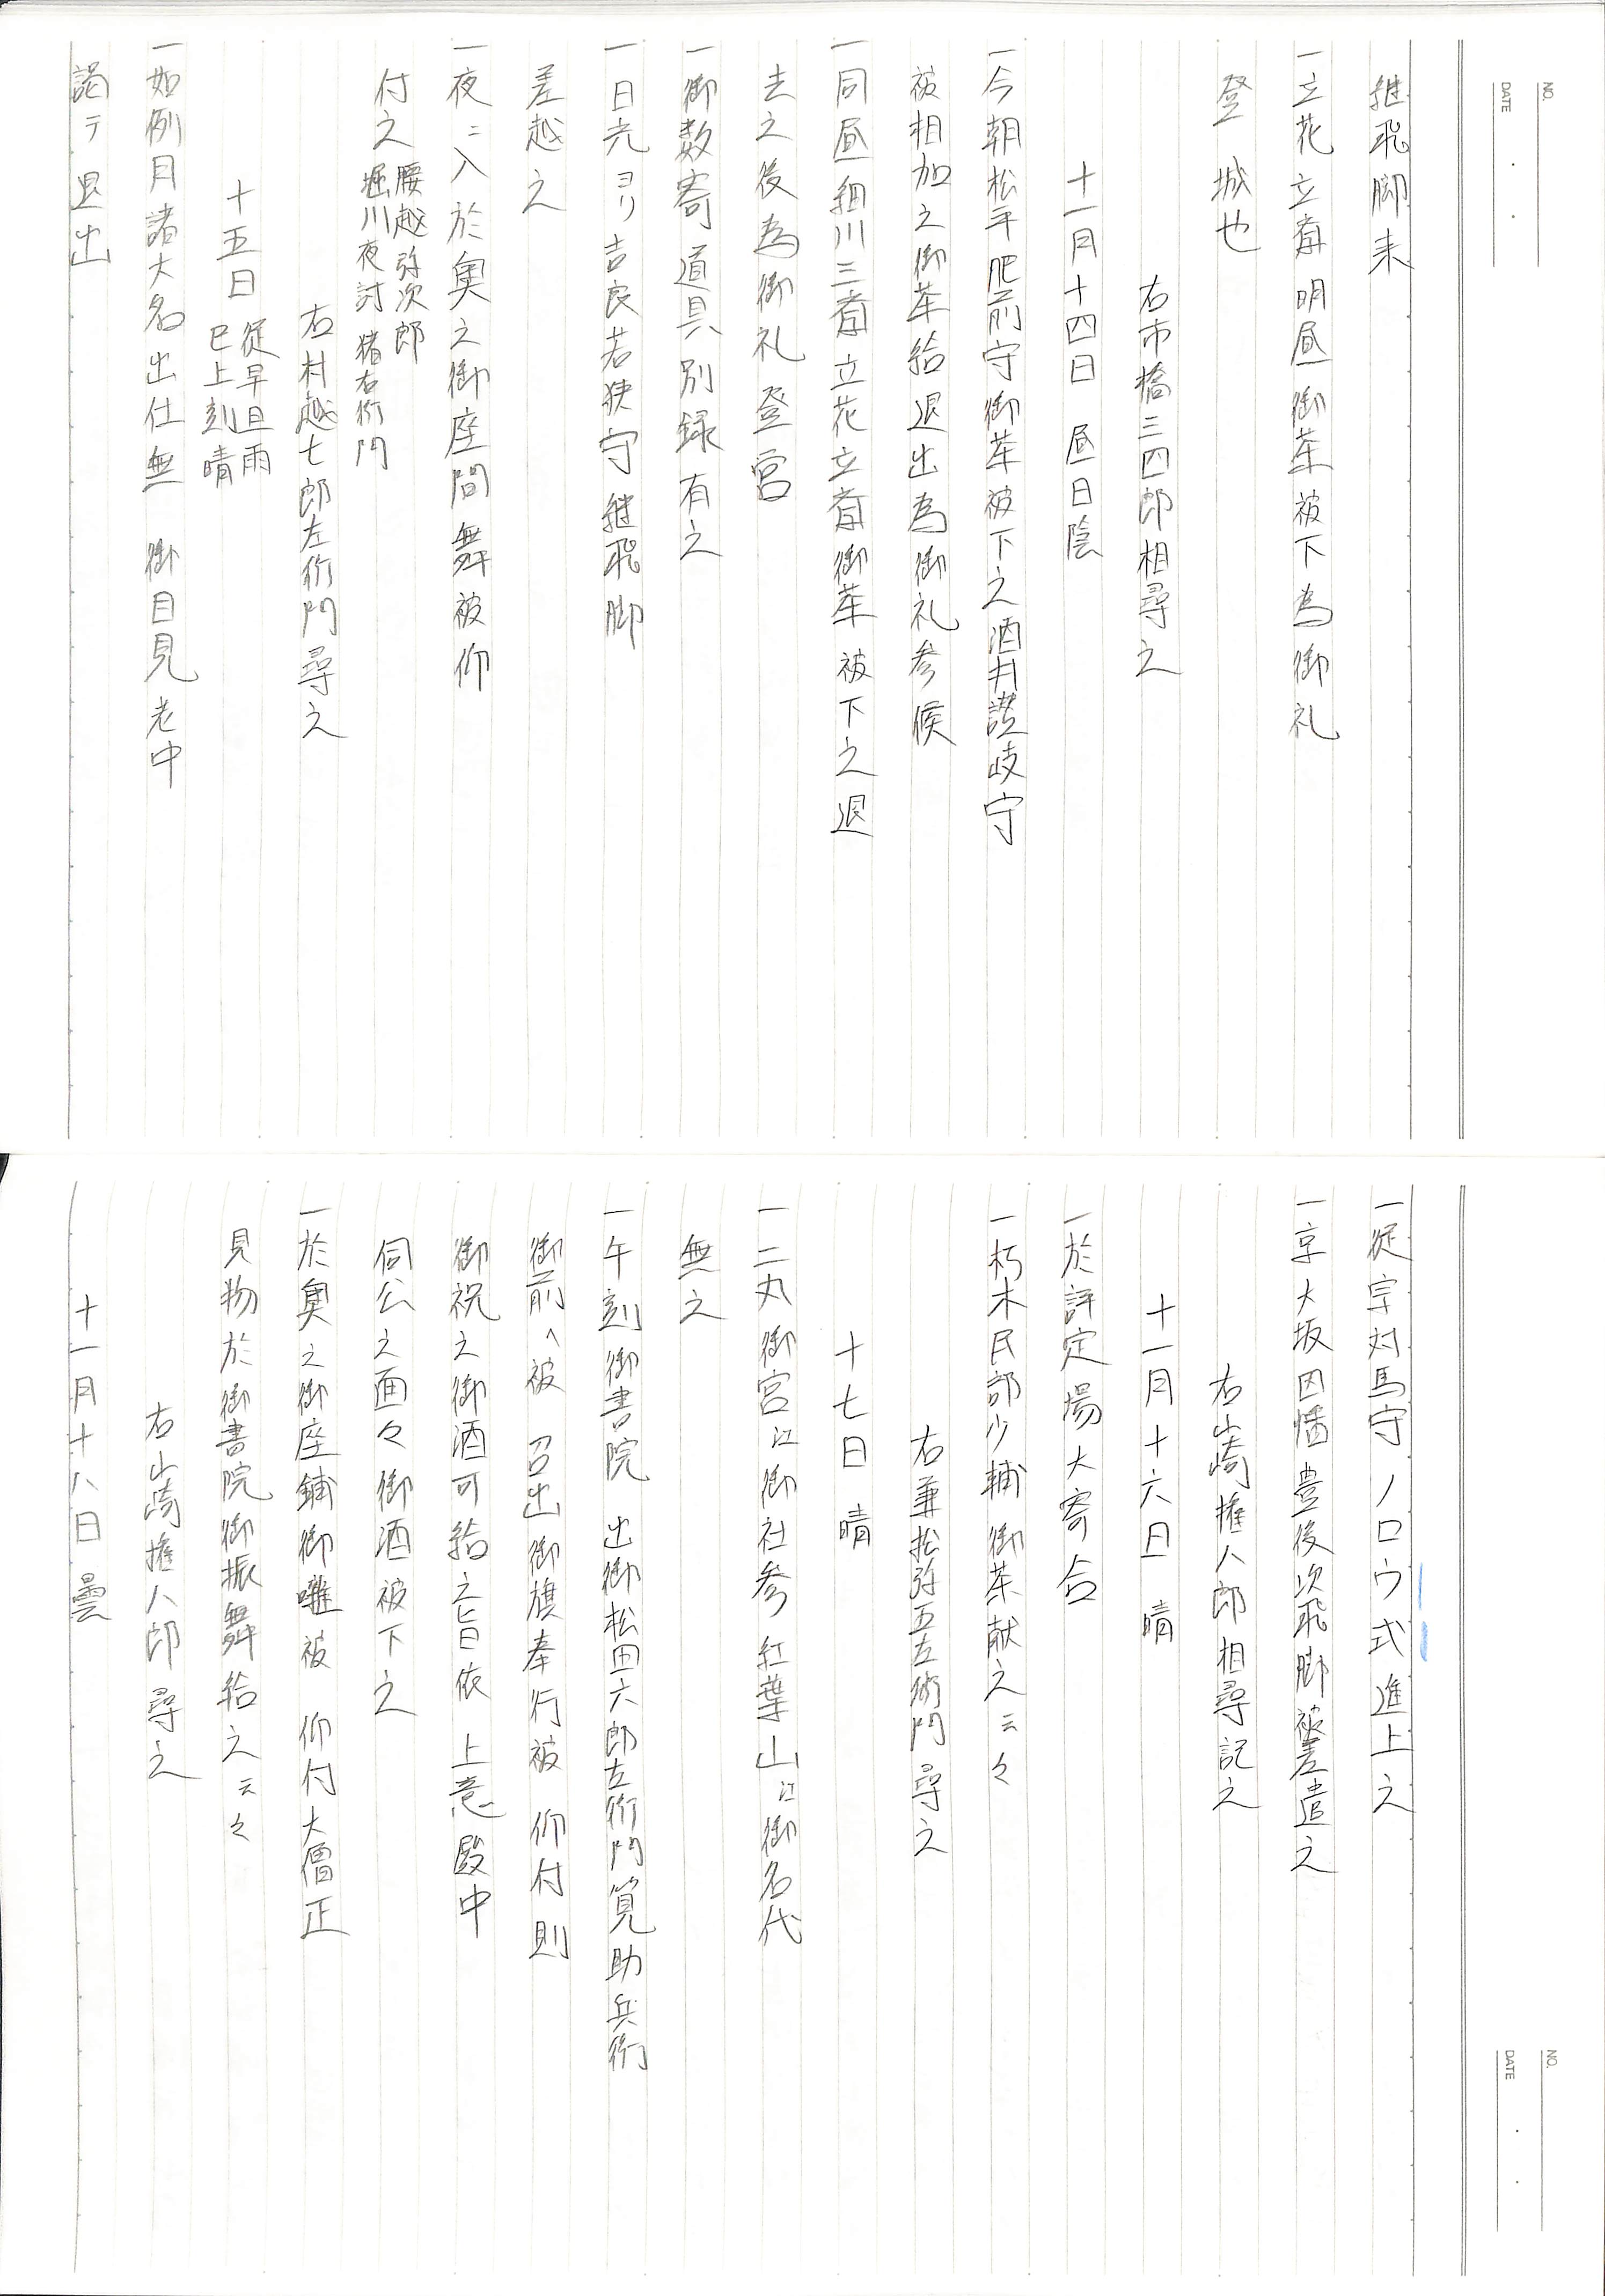 NO.
DATE
継飛脚来
一立花立斎明昼御茶被下為御礼
登 城也
右市橋三四郎相尋之
十一月十四日 昼日陰
一今朝松平肥前守御茶被下之酒井讃岐守
被相加之御茶給退出為御礼参候
一同昼細川三斎立花立斎御茶被下之退
去之後為御礼登宮
一御数寄道具別録有之
一日光ヨリ吉良若狭守継飛脚
差越之
一夜ニ入於奥之御座間舞被仰
付之 腰越弥次郎
堀川夜討 猪右衛門
右村越七郎左衛門尋之
十五日 従早旦雨
巳上刻晴
一如例月諸大名出仕無 御目見老中
謁テ退出
NO.
DATE
一従宗対馬守ノロウ弐進上之
一京大坂因幡豊後次飛脚被差遣之
右山崎権八郎相尋記之
十一月十六日 晴
一於評定場大寄合
一朽木民部少輔御茶献之云々
右兼松弥五左衛門尋之
十七日 晴
一二丸御宮江御社参紅葉山江御名代
無之
一午刻御書院 出御松田六郎左衛門筧助兵衛
御前へ被 召出御旗奉行被 仰付則
御祝之御酒可給之旨依 上意殿中
伺公之面々御酒被下之
一於奥之御座鋪御囃被 仰付大僧正
見物於御書院御振舞給之云々
右山崎権八郎尋之
十一月十八日 曇